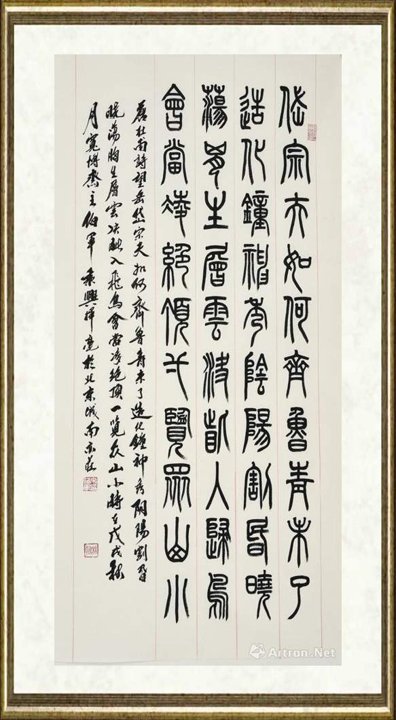 岱宗夫如何齊魯青未了
造化鐘神秀陰陽割昏曉
蕩匈生層雲決眥入歸鳥
會當凌絕頂弌覽眾山小
杜甫詩望岳岱宗夫如何齊魯青未了造化鐘神秀陰陽割昏
曉蕩胸生層雲決眥入飛鳥會當凌絕頂一覽众山小時在戊戌秋
月寬博齋主伯軍袁興祥於北京城南京莊
Artron.Net